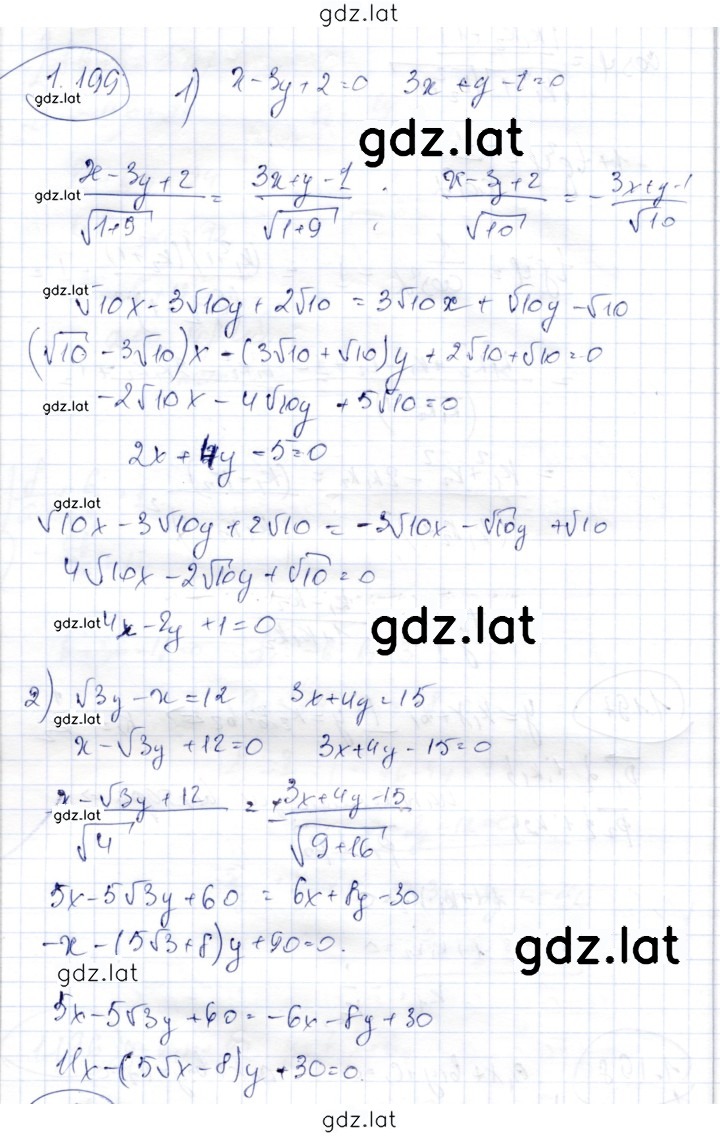 gdz.lat
1.199
gdz.lat
1) x-3y+2=0 3x+y-1=0
gdz.lat
gdz.lat
(x-3y+2)/√(1+9) = (3x+y-1)/√(1+9) ; (x-3y+2)/√10 = -(3x+y-1)/√10
gdz.lat
√10x-3√10y+2√10 = 3√10x+√10y-√10
(√10-3√10)x-(3√10+√10)y+2√10+√10=0
gdz.lat
-2√10x-4√10y+5√10=0
2x+4y-5=0
gdz.lat
√10x-3√10y+2√10=-3√10x-√10y+√10
4√10x-2√10y+√10=0
gdz.lat
4x-2y+1=0
gdz.lat
2) √3y-x=12 3x+4y=15
gdz.lat
x-√3y+12=0 3x+4y-15=0
gdz.lat
(x-√3y+12)/√4 = ±(3x+4y-15)/√(9+16)
5x-5√3y+60 = 6x+8y-30
-x-(5√3+8)y+90=0.
gdz.lat
gdz.lat
5x-5√3y+60=-6x-8y+30
11x-(5√x-8)y+30=0.
gdz.lat